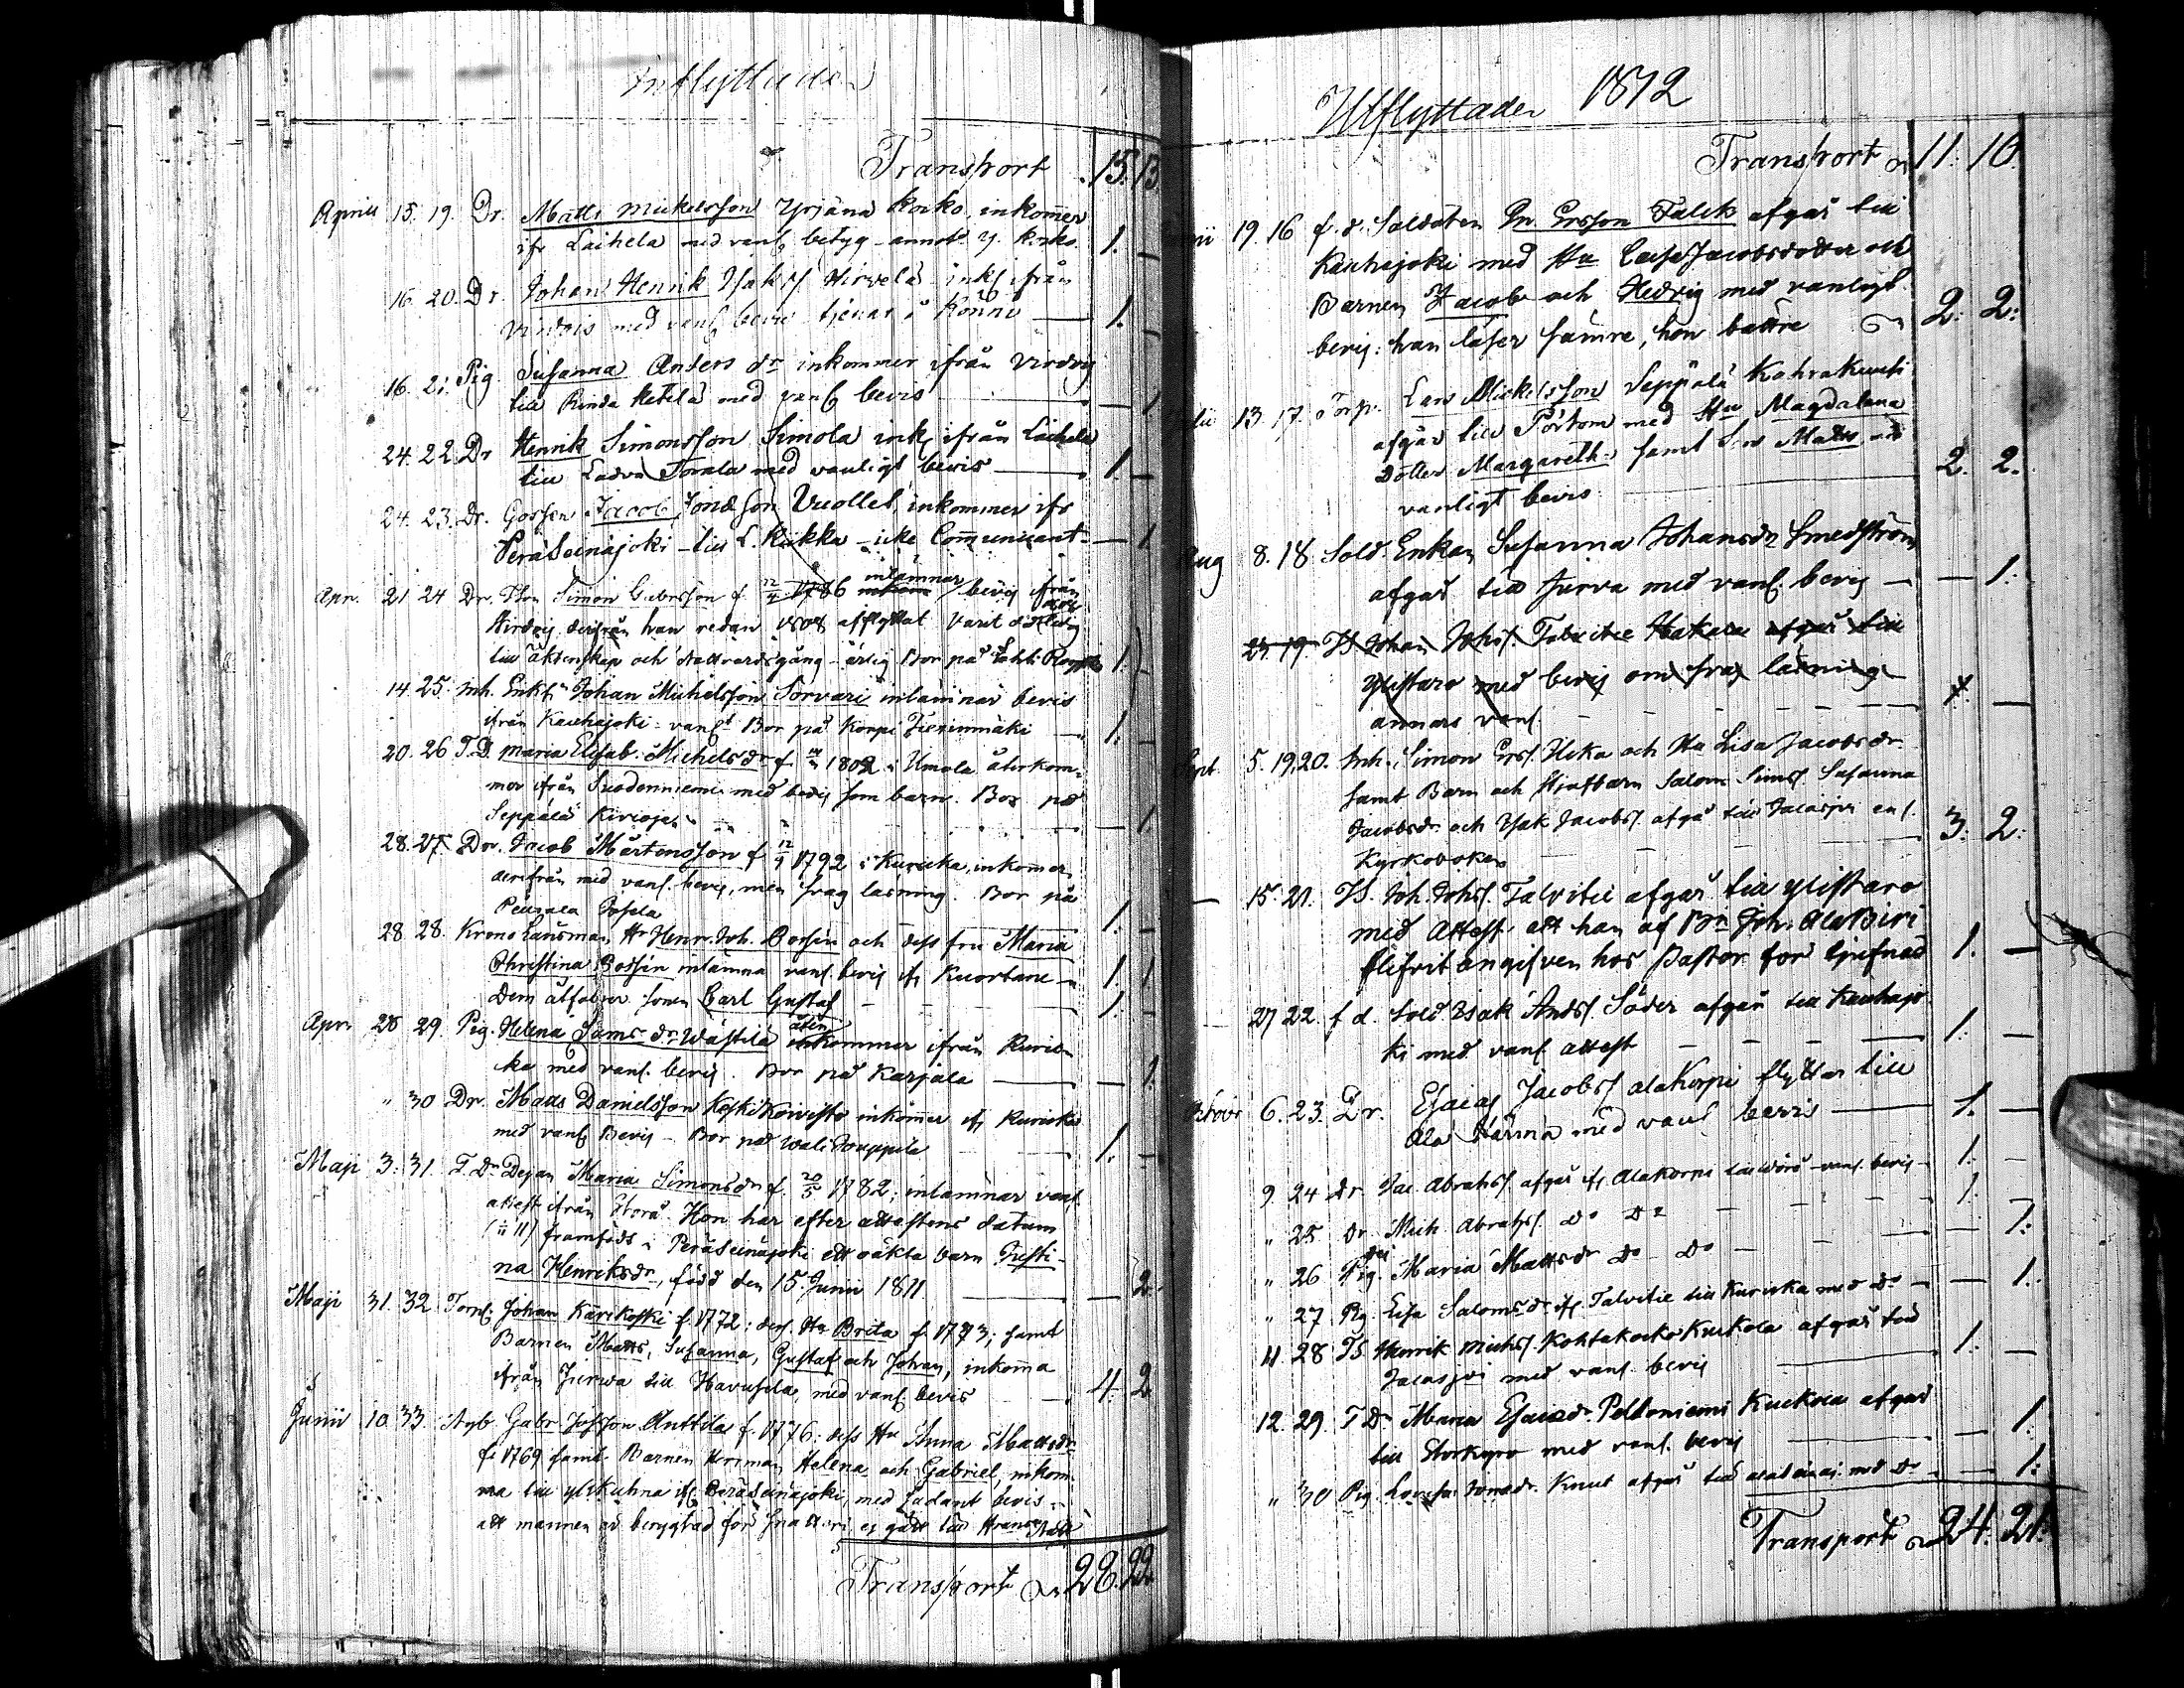 Inflyttade
Transport 15. 13
Aprill 15. 19. Dr. Matts Mickelsson Yrjänä Koko, inkom̄er
ifr Laihela med vanl. betyg - annot. y. Koko 1. —
16. 20. Dr. Johan Henrik Isaks. Hirvelä ink. ifrån
Virdois med vanl. bevis tjenar å Könni — 1. —
16. 21. Pig. Susanna Anders dr inkommer ifrån Virdois
till Rinda Ketelä med vanl. bevis — 1
24. 22. Dr Henrik Simonsson Simola ink. ifrån Laihela
till Ladva Torala med vanligt bevis — 1. —
24. 23. Dr. Gossen Jacob Jonæ son Vuollet, inkommer ifr
Peräseinäjoki - till L. Kokka - icke Com̄unicant — 1
Apr. 21 24 Dr. Simon f. 12/4 1786 inlämnar bevis ifrån
Virdois, derifrån han redan afflyttat varit
till äktenskap och Nattvardsgång - ärlig Bor på 1. —
14. 25. Inh. Enkl. Johan Michelsson Sorvari inlämnar bevis
ifrån Kauhajoki - vanl. Bor på Korpi — 1. —
20. 26 T.D. Maria Elisab. Michelsdr f. 1802 i Umola återkom-
mer ifrån Suodenniemi med bevis som barn. Bor på
Seppälä — 1.
28. 27. Dr. Jacob Mårtensson f. 12/9 1792 i Kurikka, inkommer
derifrån med vanl. bevis, men svag läsning. Bor på
Penzala Josela 1. —
28. 28. Krono Länsman Hr Henr. Joh. Bossin och dess fru Maria
Christina Bossin inlämna vanl. bevis ifr Kuortane — 1 1
Dem åtföljer sonen Carl Gustaf — 1. —
Apr. 28 29. Pig. Helena Sams. dr Wästilä åter inkommer ifrån Kurik-
ka med vanl. bevis. Bor på Karjala — 1.
" 30 Dr. Matts Danielsson Koskikoivisto inkommer ifr Kurikka
med vanl. Bevis - Bor på Wali Jouppila 1. —
Maji 3. 31. T. Dr Degan Maria Simonsdr f. 20/5 1782; inlämnar vanl.
attest ifrån Storå. Hon har efter attestens datum
framfödt i Peräseinäjoki ett oäkta barn Justi-
na Henriksdr, född den 15 Junii 1811 — 2.
Maji 31. 32 Torp. Johan Karikoski f. 1772; dess Hu Brita f. 1773; samt
Barnen Matts, Susanna, Gustaf och Johan, inkom̄a
ifrån Jurwa till Havusela, med vanl. bevis — 4. 2
Junii 10. 33. Åkb. Gabr. Jos.sson Anttila f. 1776; dess Hu Anna Mattsdr
f. 1769 samt Barnen Herman, Helena, och Gabriel, inkom-
ma till Ylikuhna ifr. Peräseinäjoki, med bevis
att mannen är beryktad för snatteri
Transport 28. 22
Utflyttade 1812
Transport 11. 10.
19. 16 f. d. Soldaten Er Ersson Falck afgår till
Kauhajoki med Hu Caisa Jacobsdotter och
Barnen Jacob och Hedvig med vanligt
bevis: han läser sämre, hon bättre 2. 2.
13. 17. Torp. Lars Mickelsson Seppälä Kahrakuusi
afgår till Pörtom med Hu Magdalena
Dotter Margareth. samt Son Matts med
vanligt bevis 2. 2.
Aug 8. 18 Sold. Enkan Susanna Johansdr Smedström
afgår till Jurva med vanl. bevis — 1.
23. 19. IS Johan Johs. Talvitie Hakala afgår till
Ylistaro med bevis om svag läsning
annars vanl. 1. —
Sept. 5. 19,20. Inh. Simon Ers. Heka och Hu Lisa Jacobsdr
samt Barn och Styfbarn Salom. Sims. Susanna
Jacobsdr. och Isak Jacobs. afgå till Jalasjri enl.
Kyrkoboken 3. 2.
— 15. 21. IS. Joh. Johs. Talvitie afgår till Ylistaro
med attest att han af Bn Joh. AlaBiri
blifvit angifven hos Pastor för tjufnad 1. —
27 22. f. d. Sold. Isak Ands. Söder afgår till Kauhajo-
ki med vanl. attest 1. —
Octobr 6. 23. Dr. Esaias Jacobs. AlaKorpi flyttar till
Ala Härmä med vanl. bevis — 1. —
9. 24 Dr. Jac. Abrahs. afgår ifr. Alakorpi till Wörå - vanl. bevis — 1. —
" 25 Dr. Mich. Abrahs. Do Do — 1. —
" 26 Pig. Maria Mattsdr Do Do — 1.
" 27 Pig. Lisa Saloms dr ifr. Talvitie till Kurikka med Do — 1.
11 28 IS. Henrik Michs. Kohtakoko Kuckola afgår till
Jalasjri med vanl. bevis — 1. —
12. 29. T Dr Maria Esaiædr Peltoniemi Kuckola afgår
till Storkyro med vanl. bevis — 1.
" 30 Pig. Lovisa Jonædr. Knuut afgår till med Do — 1.
Transport 24. 21.